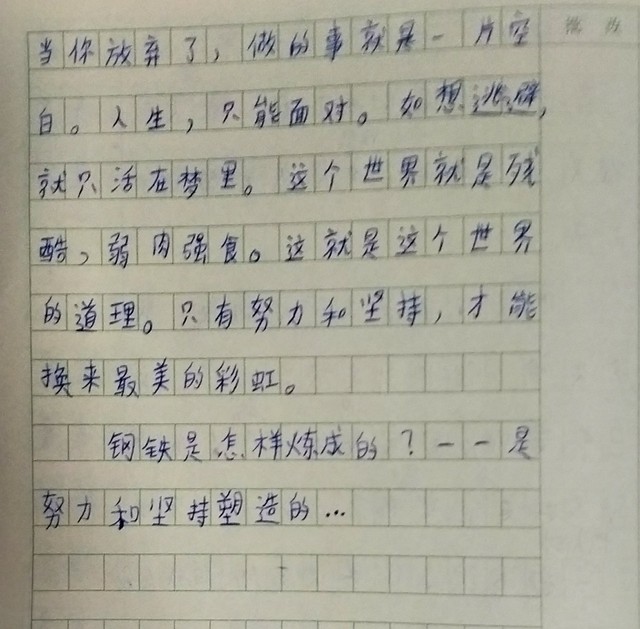 当你放弃了，做的事就是一片空
白。人生，只能面对。如想逃避，
就只活在梦里。这个世界就是残
酷，弱肉强食。这就是这个世界
的道理。只有努力和坚持，才能
换来最美的彩虹。
钢铁是怎样炼成的？——是
努力和坚持塑造的…